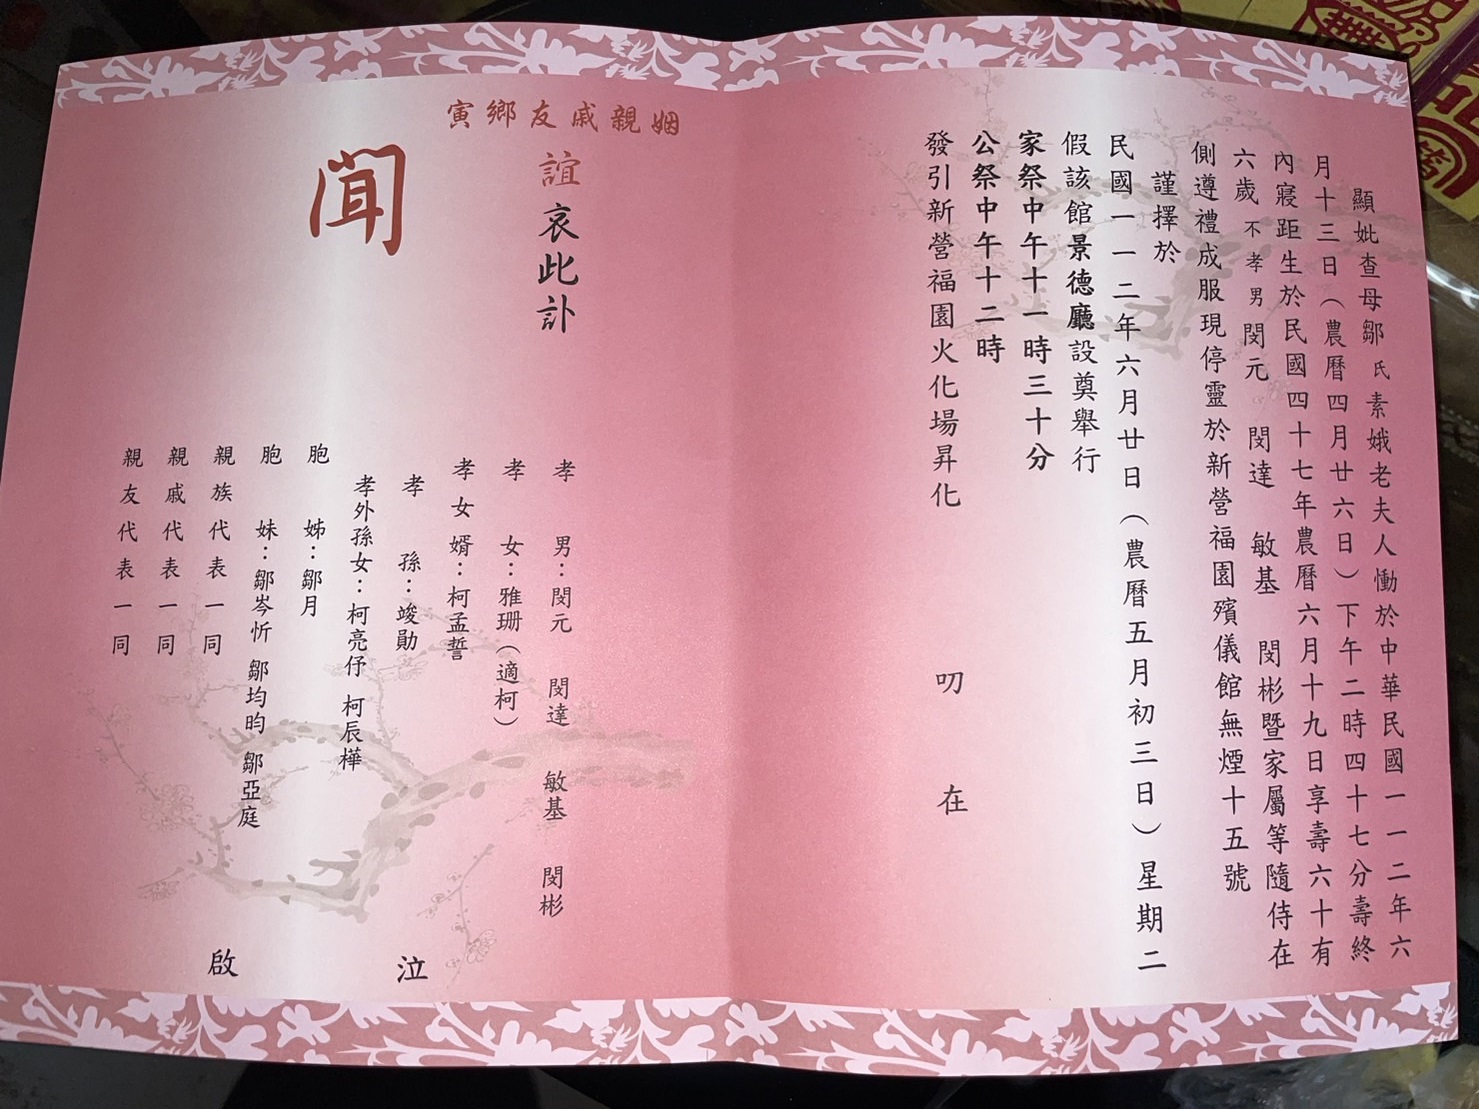 顯妣查母鄒氏素娥老夫人慟於中華民國一一二年六
月十三日（農曆四月廿六日）下午二時四十七分壽終
內寢距生於民國四十七年農曆六月十九日享壽六十有
六歲不孝男閔元　閔達　敏基　閔彬暨家屬等隨侍在
側遵禮成服現停靈於新營福園殯儀館無煙十五號
謹擇於
民國一一二年六月廿日（農曆五月初三日）星期二
假該館景德廳設奠舉行
家祭中午十一時三十分
公祭中午十二時
發引新營福園火化場昇化
叨　在
姻親戚友鄉寅
誼哀此訃
聞
孝　男：閔元　閔達　敏基　閔彬
孝　女：雅珊（適柯）
孝女婿：柯孟誓
孝　孫：竣勛
孝外孫女：柯亮伃　柯辰樺
胞　姊：鄒月
胞　妹：鄒岑忻　鄒均昀　鄒亞庭
親族代表一同
親戚代表一同
親友代表一同
泣
啟